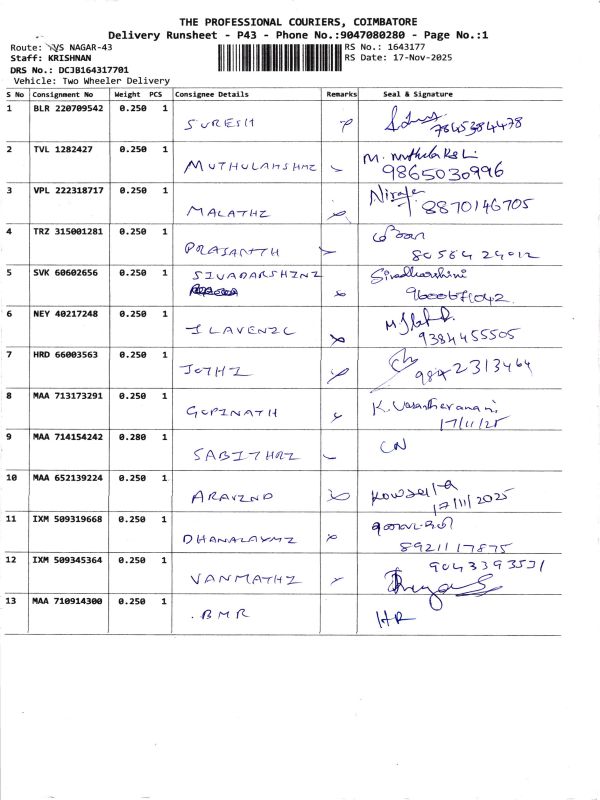 THE PROFESSIONAL COURIERS, COIMBATORE
Delivery Runsheet - P43 - Phone No.:9047080280 - Page No.:1
Route: NAGAR-43 RS No.: 1643177
Staff: KRISHNAN RS Date: 17-Nov-2025
DRS No.: DCJB164317701
Vehicle: Two Wheeler Delivery
S No Consignment No Weight PCS Consignee Details Remarks Seal & Signature
1 BLR 220709542 0.250 1 SURESH
7845384478
2 TVL 1282427 0.250 1 MUTHULAKSHMI M. Muthulakshmi
9865030996
3 VPL 222318717 0.250 1 MALATHI
8870146705
4 TRZ 315001281 0.250 1 PRASANTH
80564 24012
5 SVK 60602656 0.250 1 SIVADARSHINI Sivadharshini
9600671042
6 NEY 40217248 0.250 1 ILAVENIL
9384455505
7 HRD 66003563 0.250 1 JOTHI
9842313464
8 MAA 713173291 0.250 1 GOPINATH K.
17/11/25
9 MAA 714154242 0.280 1 SABITHRI CN
10 MAA 652139224 0.250 1 ARAVIND Kowsalya
17/11/2025
11 IXM 509319668 0.250 1 DHANALAXMI
8921117875
12 IXM 509345364 0.250 1 VANMATHI 9043393531
13 MAA 710914300 0.250 1 BMR HR